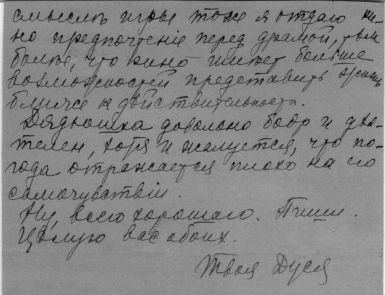 смыслѣ игры тоже я отдаю ки-
но предпочтеніе передъ драмой, тѣм
болѣе, что кино имѣет больше
возможностей представить жизнь
ближе к дѣйствительности.
Дядюшка довольно бодр и дѣя-
телен, хотя и жалуется, что по-
года отражается плохо на его
самочувствіи.
Ну, всего хорошаго. Пиши.
Цѣлую вас обоих.
Твоя Дуся